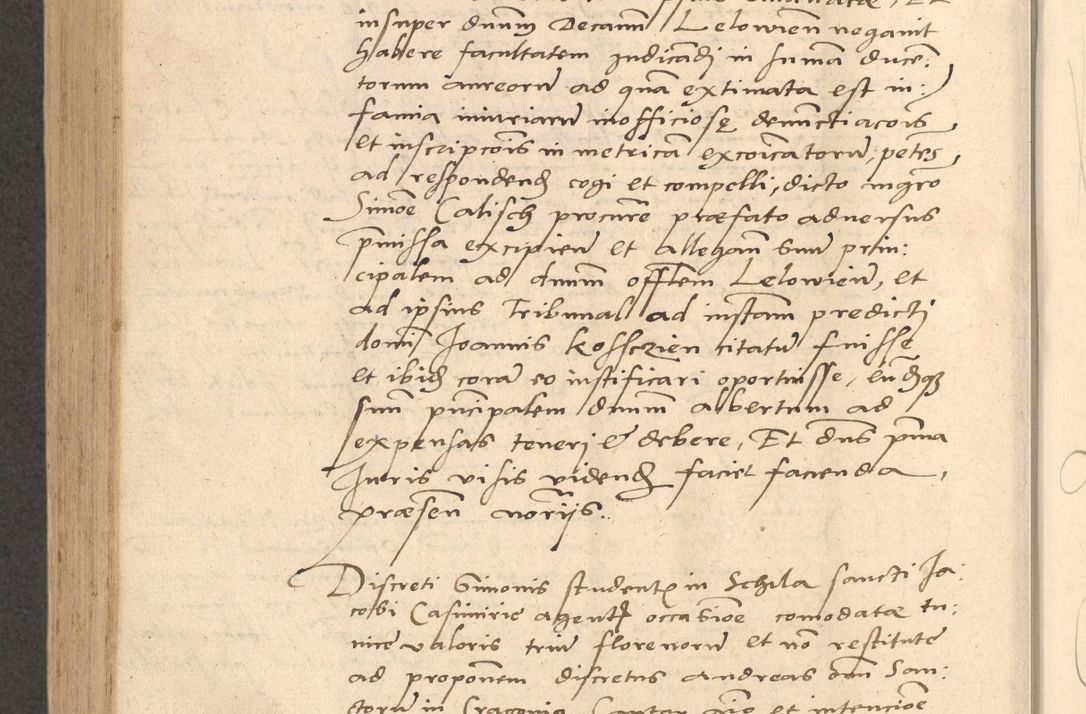 insuper dnum Decanu Lelowien negavit
habere facultatem Judicadj in sumā ducē:
torum aureorū ad quā extimata est in:
famia iniuriarū inofficiosę denunctiacois
et inscripcois in metricā excoicatorū, petes,
ad respondend cogi et compelli, dicto mgro
Simoe Calisch procure præfato adversus
pmissa excipien et allegan suu prin:
cipalem ad dnum offlem Lelowien, et
ad ipsius Tribunal ad instam predicti
domi Joannis Kosserzien citatū fuisse
et ibid corā eo iustificari oportuisse, eundqz
suu pncipalem dnum albertum ad
expensas teneri et debere, Et dns pma
Juris visis vidend faciet facienda,
præsen norijs.
Discreti Simonis student in Schola sancti Ja:
cobi Casimirie agent occasioe comodatæ tu:
nice valoris triu florenorū et no restitute
ad proponem discretus Andreas om̄ San:
ctorū in Cracovia Cantor aīo et intencioe